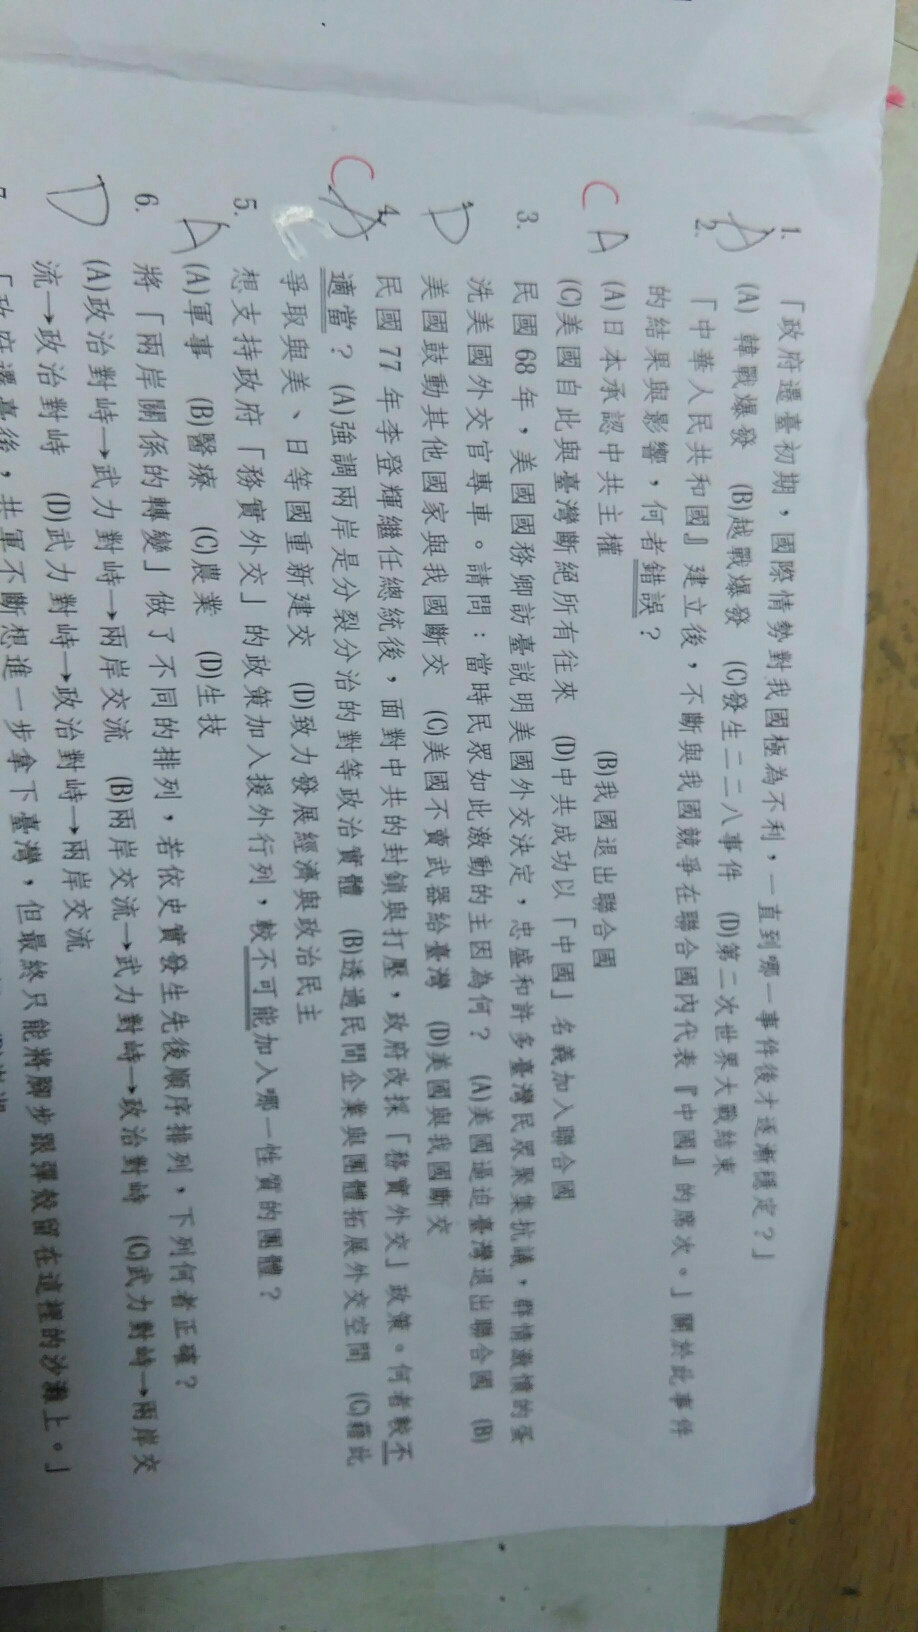 1. 「政府遷臺初期，國際情勢對我國極為不利，一直到哪一事件後才逐漸穩定？」
A (A) 韓戰爆發 (B)越戰爆發 (C)發生二二八事件 (D)第二次世界大戰結束
2. 「中華人民共和國』建立後，不斷與我國競爭在聯合國內代表『中國』的席次。」關於此事件
的結果與影響，何者錯誤？
C A (A)日本承認中共主權 (B)我國退出聯合國
(C)美國自此與臺灣斷絕所有往來 (D)中共成功以「中國」名義加入聯合國
3. 民國 68 年，美國國務卿訪臺說明美國外交決定，忠盛和許多臺灣民眾聚集抗議，群情激憤的蛋
洗美國外交官專車。請問：當時民眾如此激動的主因為何？ (A)美國逼迫臺灣退出聯合國 (B)
D 美國鼓動其他國家與我國斷交 (C)美國不賣武器給臺灣 (D)美國與我國斷交
4. 民國 77 年李登輝繼任總統後，面對中共的封鎖與打壓，政府改採「務實外交」政策。何者較不
C 適當？ (A)強調兩岸是分裂分治的對等政治實體 (B)透過民間企業與團體拓展外交空間 (C)藉此
爭取與美、日等國重新建交 (D)致力發展經濟與政治民主
5. 想支持政府「務實外交」的政策加入援外行列，較不可能加入哪一性質的團體？
A (A)軍事 (B)醫療 (C)農業 (D)生技
6. 將「兩岸關係的轉變」做了不同的排列，若依史實發生先後順序排列，下列何者正確？
(A)政治對峙→武力對峙→兩岸交流 (B)兩岸交流→武力對峙→政治對峙 (C)武力對峙→兩岸交
D 流→政治對峙 (D)武力對峙→政治對峙→兩岸交流
「政府遷臺後，共軍不斷想進一步拿下臺灣，但最終只能將腳步跟彈殼留在這裡的沙灘上。」